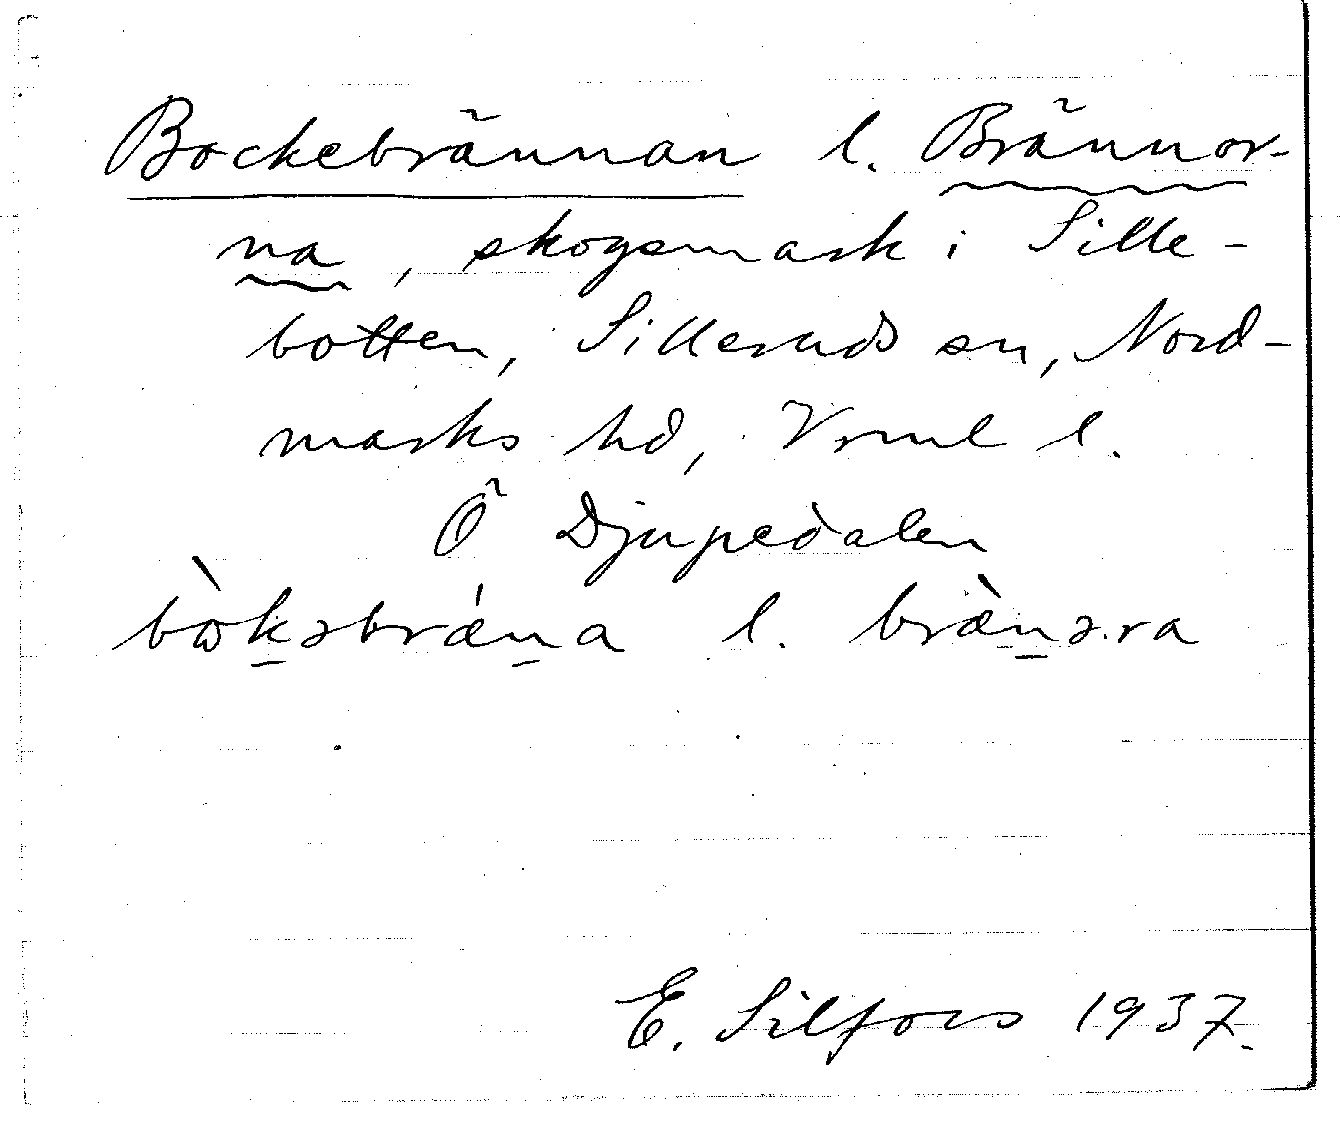 Bockebrännan l. Brännor-
na, skogsmark i Sille-
botten, Silleruds sn, Nord-
marks hd, Vrml l.
Ö Djupedalen
bɷ̀k̲əbrǽn̲a l. bræ̀n̲ə.ra
E. Silfors 1937.